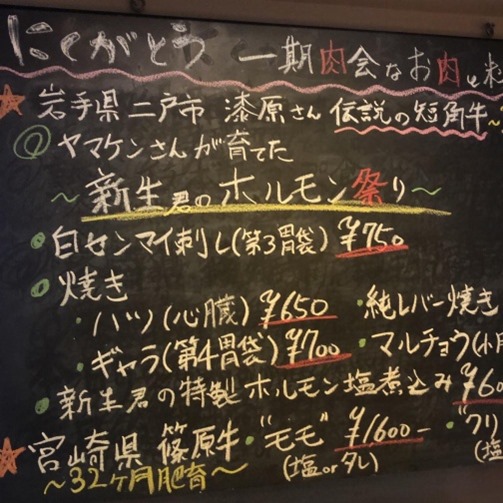 にくがとう 一期肉会なお肉と
★ 岩手県 二戸市 漆原さん 伝説の短角牛~
ヤマケンさんが育てた
~新生君のホルモン祭り~
・白センマイ刺し(第3胃袋) ¥750
・焼き
・ハツ(心臓) ¥650 ・純レバー焼き
・ギャラ(第4胃袋) ¥700 ・マルチョウ(小
・新生君の特製ホルモン塩煮込み ¥60
★ 宮崎県 篠原牛・"モモ" ¥1600- ・"クリ
~32ヶ月肥育~ (塩orタレ) (塩